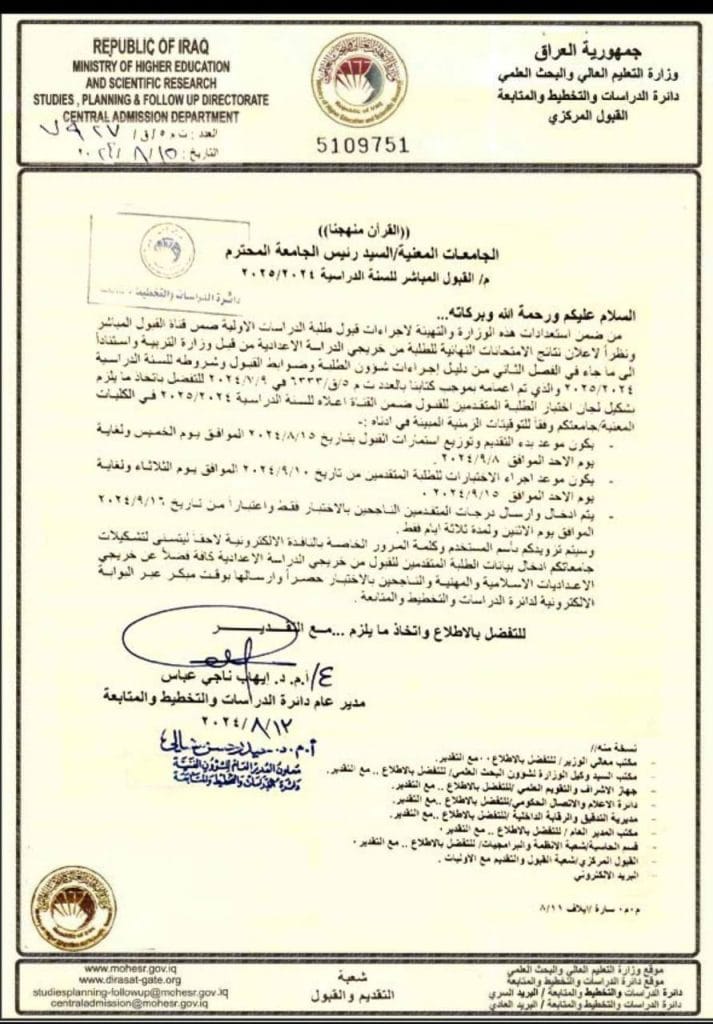 REPUBLIC OF IRAQ
MINISTRY OF HIGHER EDUCATION
AND SCIENTIFIC RESEARCH
STUDIES , PLANNING & FOLLOW UP DIRECTORATE
CENTRAL ADMISSION DEPARTMENT
العدد: ت م ٥/ق/ ٧٩٢٧
التاريخ:
5109751
جمهورية العراق
وزارة التعليم العالي والبحث العلمي
دائرة الدراسات والتخطيط والمتابعة
القبول المركزي
((القرآن منهجنا))
الجامعات المعنية/السيد رئيس الجامعة المحترم
م/ القبول المباشر للسنة الدراسية ٢٠٢٥/٢٠٢٤
دائرة الدراسات والتخطيط
السلام عليكم ورحمة الله وبركاته...
من ضمن استعدادات هذه الوزارة والتهيئة لاجراءات قبول طلبة الدراسات الاولية ضمن قناة القبول المباشر
ونظراً لاعلان نتائج الامتحانات النهائية للطلبة من خريجي الدراسة الاعدادية من قبل وزارة التربية واستناداً
الى ما جاء في الفصل الثاني من دليل اجراءات شؤون الطلبة وضوابط القبول وشروطه للسنة الدراسية
٢٠٢٥/٢٠٢٤ والذي تم اعمامه بموجب كتابنا بالعدد ت م ٥/ق/٦٣٣٣ في ٢٠٢٤/٧/٩ للتفضل باتخاذ ما يلزم
تشكيل لجان اختبار الطلبة المتقدمين للقبول ضمن القناة اعلاه للسنة الدراسية ٢٠٢٥/٢٠٢٤ في الكليات
المعنية/جامعتكم وفقاً للتوقيتات الزمنية المبينة في ادناه :-
- يكون موعد بدء التقديم وتوزيع استمارات القبول بتاريخ ٢٠٢٤/٨/١٥ الموافق يوم الخميس ولغاية
يوم الاحد الموافق ٢٠٢٤/٩/٨ .
- يكون موعد اجراء الاختبارات للطلبة المتقدمين من تاريخ ٢٠٢٤/٩/١٠ الموافق يوم الثلاثاء ولغاية
يوم الاحد الموافق ٢٠٢٤/٩/١٥ .
- يتم ادخال وارسال درجات المتقدمين الناجحين بالاختبار فقط واعتباراً من تاريخ ٢٠٢٤/٩/١٦
الموافق يوم الاثنين ولمدة ثلاثة ايام فقط .
وسيتم تزويدكم بأسم المستخدم وكلمة المرور الخاصة بالنافذة الالكترونية لاحقاً ليتسنى لتشكيلات
جامعاتكم ادخال بيانات الطلبة المتقدمين للقبول من خريجي الدراسة الاعدادية كافة فضلاً عن خريجي
الاعداديات الاسلامية والمهنية والناجحين بالاختبار حصراً وارسالها بوقت مبكر عبر البوابة
الالكترونية لدائرة الدراسات والتخطيط والمتابعة .
للتفضل بالاطلاع واتخاذ ما يلزم ...مع التقدير
ع/أ.م.د. إيهاب ناجي عباس
مدير عام دائرة الدراسات والتخطيط والمتابعة
٢٠٢٤/٨/١٢
أ.م.د. حيدر حسن
معاون المدير العام للشؤون الفنية
دائرة الدراسات والتخطيط والمتابعة
نسخة منه//
- مكتب معالي الوزير/ للتفضل بالاطلاع ..مع التقدير.
- مكتب السيد وكيل الوزارة لشؤون البحث العلمي/ للتفضل بالاطلاع .. مع التقدير.
- جهاز الاشراف والتقويم العلمي /للتفضل بالاطلاع .. مع التقدير.
- دائرة الاعلام والاتصال الحكومي/للتفضل بالاطلاع ..مع التقدير.
- مديرية التدقيق والرقابة الداخلية /للتفضل بالاطلاع ..مع التقدير.
- مكتب المدير العام / للتفضل بالاطلاع .. مع التقدير.
- قسم الحاسبة/شعبة الانظمة والبرامجيات/ للتفضل بالاطلاع .. مع التقدير.
- القبول المركزي/شعبة القبول والتقديم مع الاوليات .
- البريد الالكتروني
م.م. سارة /ايلاف ٨/١١
www.mohesr.gov.iq
www.dirasat-gate.org
studiesplanning-followup@mohesr.gov.iq
centraladmission@mohesr.gov.iq
شعبة
التقديم والقبول
موقع وزارة التعليم العالي والبحث العلمي
موقع دائرة الدراسات والتخطيط والمتابعة
دائرة الدراسات والتخطيط والمتابعة / البريد السري
دائرة الدراسات والتخطيط والمتابعة / البريد العادي